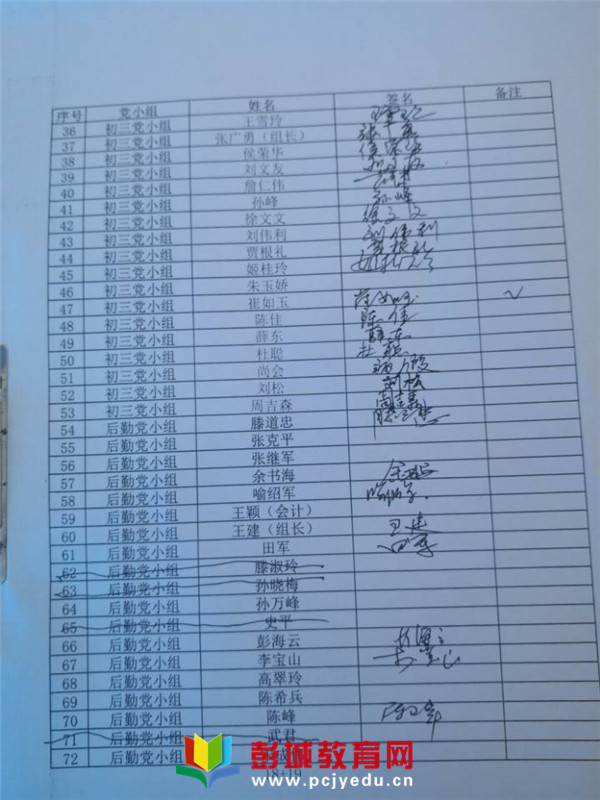 序号 党小组 姓名 签名 备注
36 初三党小组 王雪玲
37 初三党小组 张广勇（组长）
38 初三党小组 侯荣华
39 初三党小组 刘文友
40 初三党小组 詹仁伟
41 初三党小组 孙峰 孙峰
42 初三党小组 徐文文 徐文文
43 初三党小组 刘伟利 刘伟利
44 初三党小组 贾根礼 贾根礼
45 初三党小组 姬桂玲
46 初三党小组 朱玉娇
47 初三党小组 崔如玉 √
48 初三党小组 陈佳 陈佳
49 初三党小组 薛东 薛东
50 初三党小组 杜聪 杜聪
51 初三党小组 尚会
52 初三党小组 刘松 刘松
53 初三党小组 周吉森 周吉森
54 后勤党小组 滕道忠
55 后勤党小组 张克平
56 后勤党小组 张继军
57 后勤党小组 余书海
58 后勤党小组 喻绍军
59 后勤党小组 王颖（会计）
60 后勤党小组 王建（组长） 王建
61 后勤党小组 田军 田军
62 后勤党小组 滕淑玲
63 后勤党小组 孙晓梅
64 后勤党小组 孙万峰
65 后勤党小组 史平
66 后勤党小组 彭海云
67 后勤党小组 李宝山
68 后勤党小组 高翠玲
69 后勤党小组 陈希兵
70 后勤党小组 陈峰
71 后勤党小组 武君
72 后勤党小组
18+19
彭城教育网
www.pcjyedu.cn